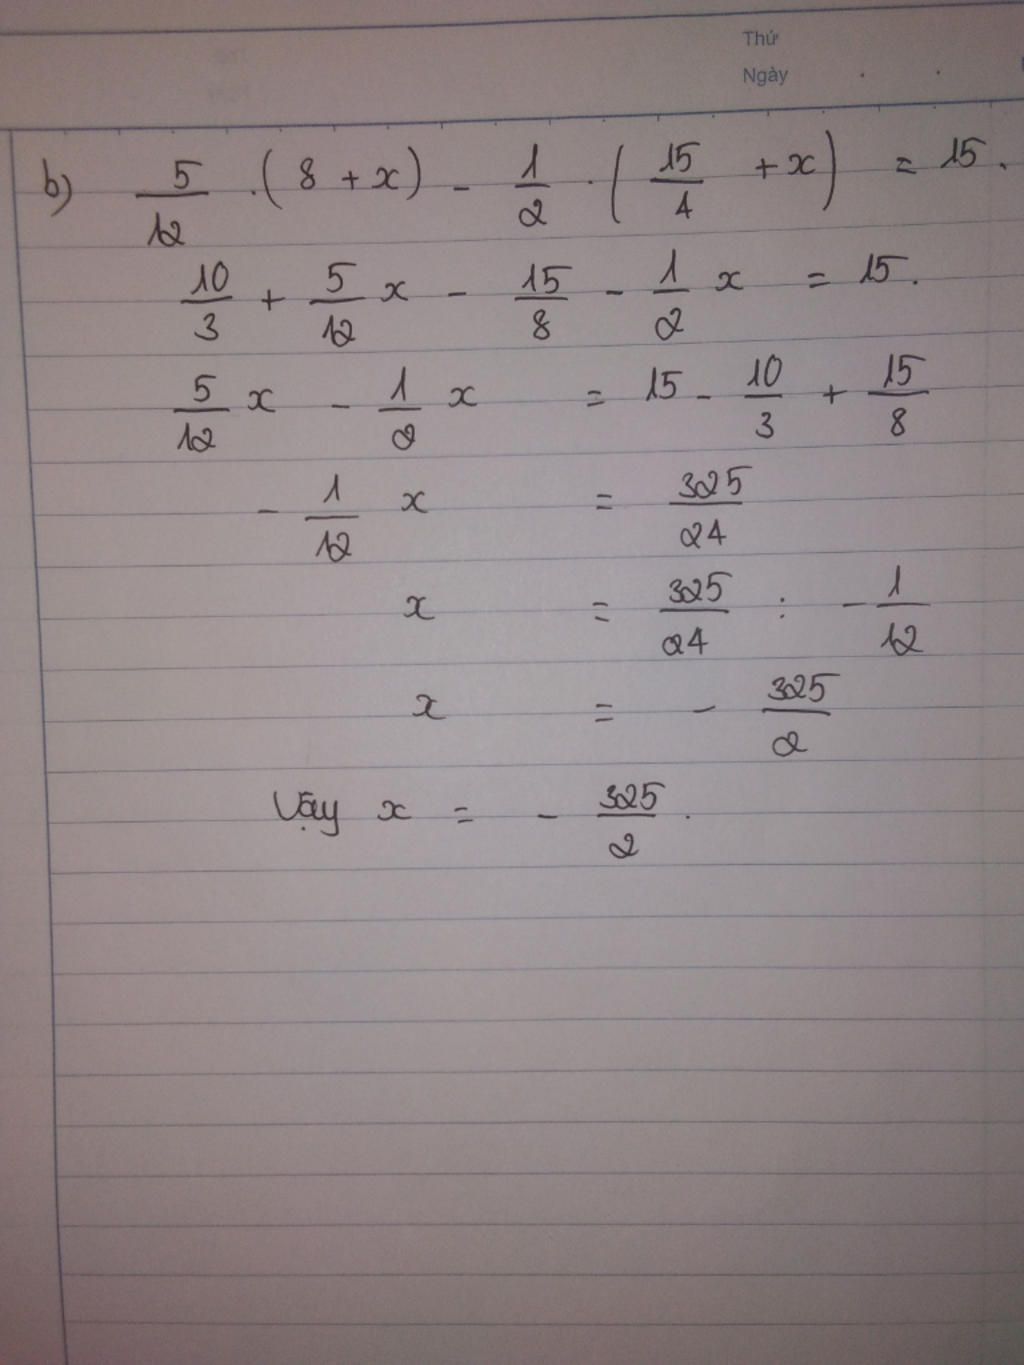 Thứ
Ngày
b) 5/12 . ( 8 + x ) - 1/2 . ( 15/4 + x ) = 15 .
10/3 + 5/12 x - 15/8 - 1/2 x = 15 .
5/12 x - 1/2 x = 15 - 10/3 + 15/8
- 1/12 x = 325/24
x = 325/24 : - 1/12
x = - 325/2
Vậy x = - 325/2 .